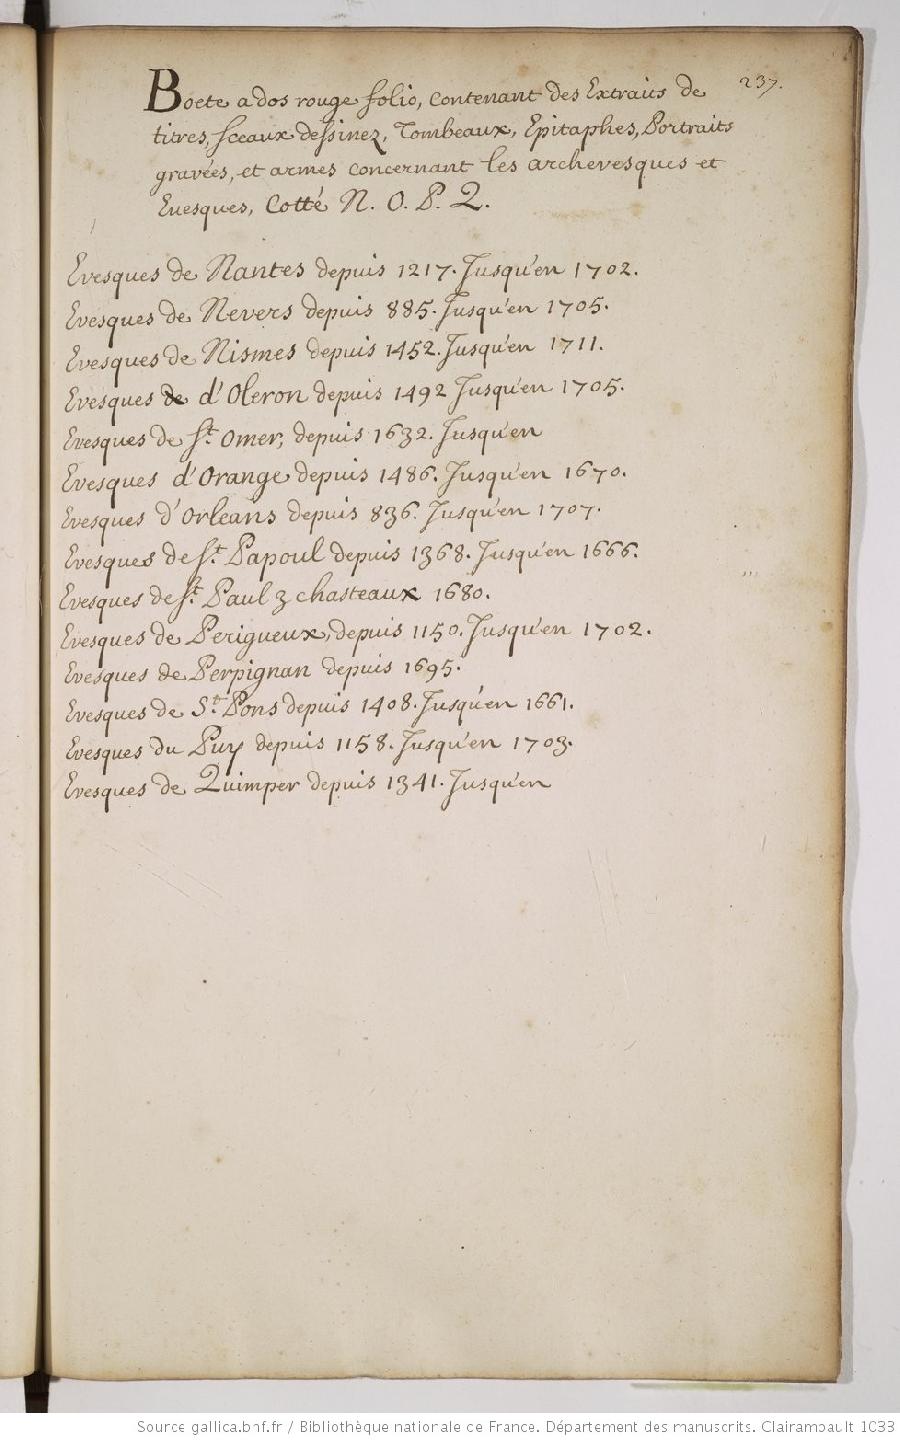 237.
Boete a dos rouge folio, contenant des Extraits de
titres, sceaux dessinez, Tombeaux, Epitaphes, Portraits
gravées, et armes concernant les archevesques et
Evesques, Cotté N. O. P. Q.
Evesques de Nantes depuis 1217. Jusqu'en 1702.
Evesques de Nevers depuis 885. Jusqu'en 1705.
Evesques de Nismes depuis 1452. Jusqu'en 1711.
Evesques de d'Oleron depuis 1492 Jusqu'en 1705.
Evesques de St. Omer, depuis 1632. Jusqu'en
Evesques d'Orange depuis 1486. Jusqu'en 1670.
Evesques d'Orleans depuis 836. Jusqu'en 1707.
Evesques de St. Papoul depuis 1368. Jusqu'en 1666.
Evesques de St. Paul 3 chasteaux 1680.
Evesques de Perigueux, depuis 1150. Jusqu'en 1702.
Evesques de Perpignan depuis 1695.
Evesques de St. Pons depuis 1408. Jusqu'en 1661.
Evesques du Puy depuis 1158. Jusqu'en 1703.
Evesques de Quimper depuis 1341. Jusqu'en
Source gallica.bnf.fr / Bibliothèque nationale de France. Département des manuscrits. Clairambault 1033